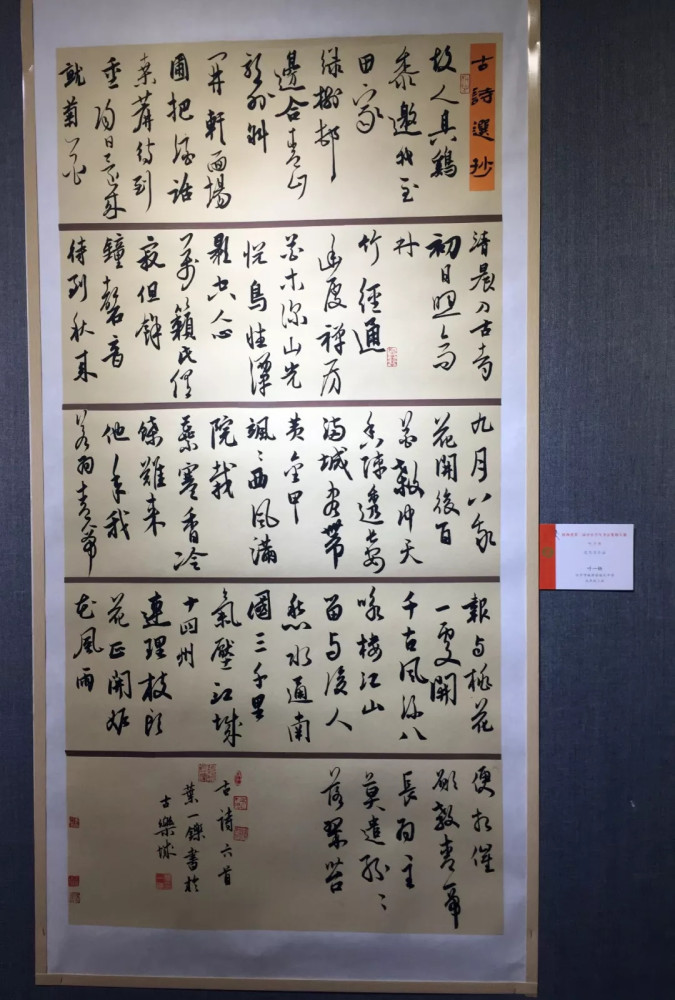 古詩選抄
故人具鷄
黍邀我至
田家
緑樹邨
邊合青山
郭外斜
開軒面場
圃把酒話
桑麻待到
重陽日還來
就菊花
清晨入古寺
初日照高
林
竹徑通
幽處禪房
花木深山光
悦鳥性潭
影空人心
萬籟此俱
寂但餘
鐘磬音
待到秋來
九月八我
花開後百
花殺冲天
香陣透長安
滿城盡帶
黄金甲
颯〻西風滿
院栽
蕊寒香冷
蝶難來
他年我
若爲青帝
報與桃花
一處開
千古風流八
咏樓江山
留與後人
愁水通南
國三千里
氣壓江城
十四州
連理枝頭
花正開妒
花風雨
便相催
願教青帝
長爲主
莫遣紛〻
落翠苔
古詩六首
葉一鑅書於
古樂城